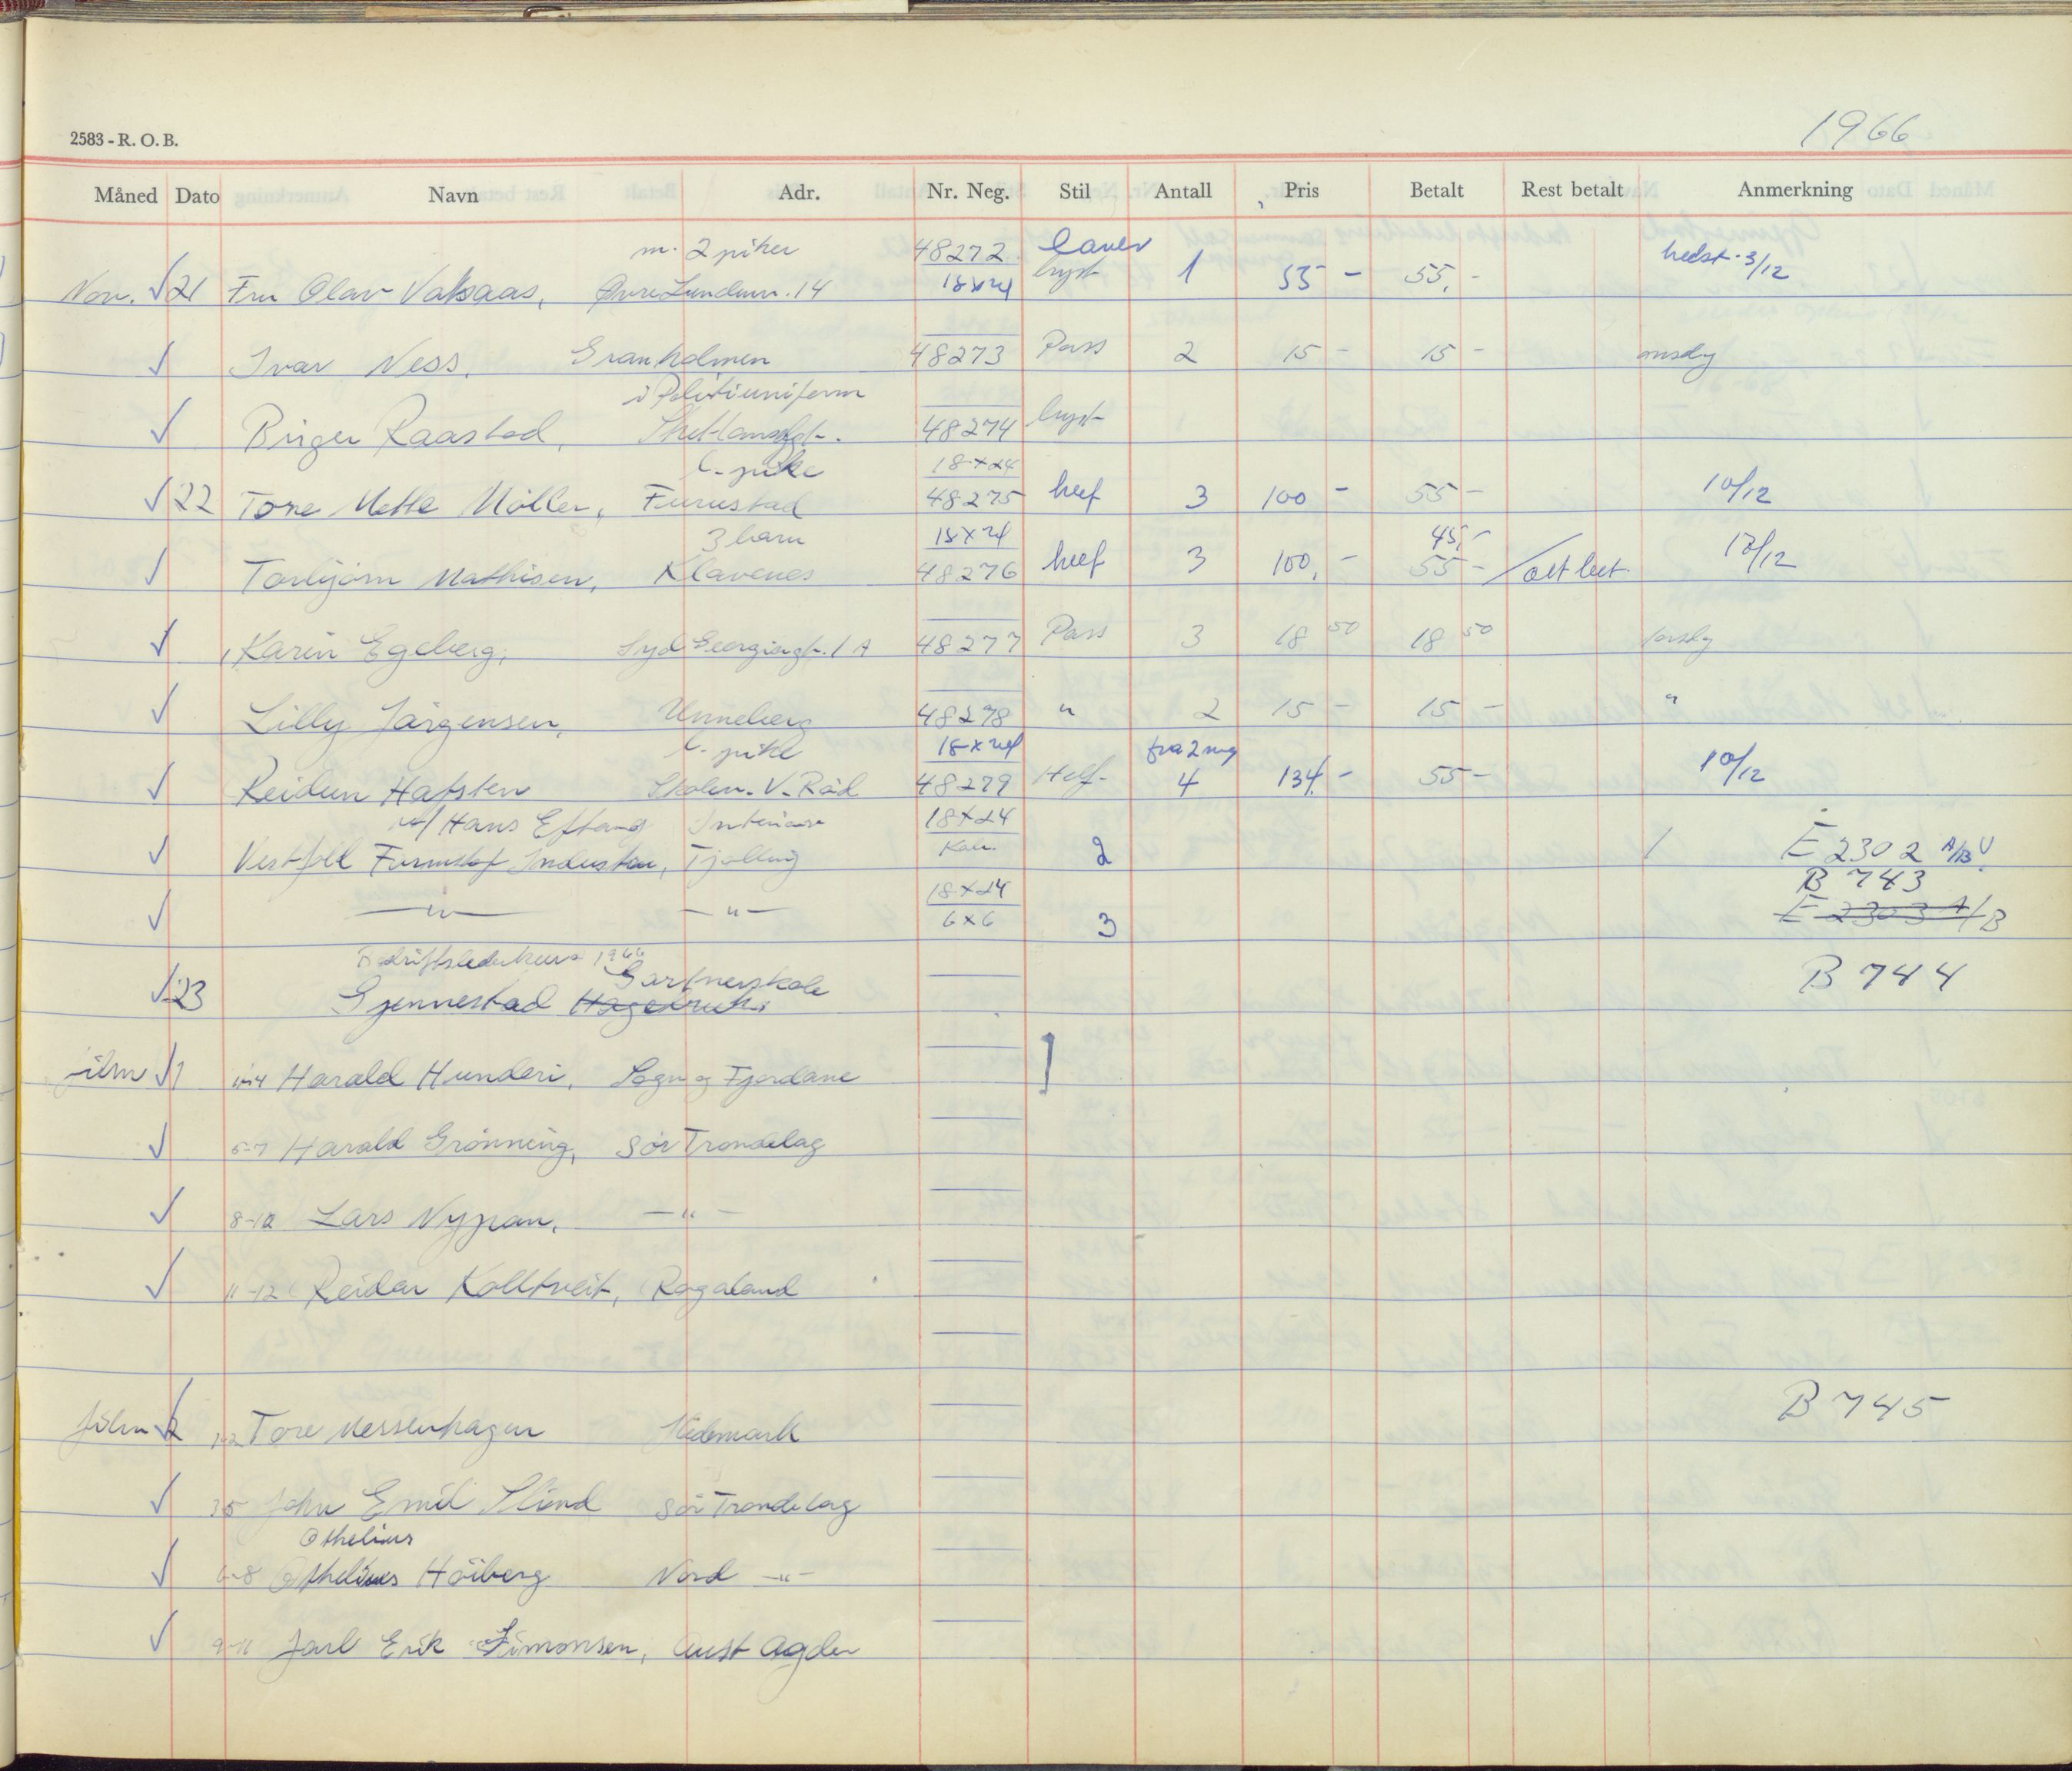 1966
2583 - R. O. B.
Måned Dato Navn Adr. Nr. Neg. Stil Antall Pris Betalt Rest betalt Anmerkning
m. 2 piker 48272 hedst. 3/12
Nov. √ 21 Fru Olav Valsaas, 14 18x24 bryst 1 55 - 55,-
√ Ivar Ness, Granholmen 48273 Pass 2 15 - 15 - onsdg
i Politiuniform
√ Birger Raastad, 48274 bryst
l. pike 18x24
√ 22 Tone Mette Möller, Furustad 48275 heef 3 100 - 55 - 10/12
3 barn 18x24 45,-
√ Torbjörn Mathisen, Klavenes 48276 heef 3 100,- 55 - alt bet. 17/12
√ Karin Egeberg, Syd Georgiagt. 1 A 48277 Pass 3 18 50 18 50 torsdg
√ Lilly Jörgensen, Unneberg 48278 " 2 15 - 15 - "
l. pike 18x24 fra 2 neg
√ Reidun Hafsten Skolen. V. Råd 48279 Helf- 4 134,- 55 - 10/12
v/ Hans Eftang Interiör 18x24
√ Vestfold Industri, Tjölling Kab. 2 E 2302 A/B
B 743
√ — " — — " — 18x24 6x6 3 E 2303 A/B
Bedriftslederkurs 1966
Gartnerskole B 744
√ 23 Gjennestad
film √ 1 1-4 Harald Hunderi, Sogn og Fjordane
√ 5-7 Harald Grönning, Sör Trøndelag
√ 8-10 Lars Nypan, — " —
√ 11-12 Reidar Kolltveit, Rogaland
B 745
film √ 2 1-2 Tore Messenhagen Hedemark
√ 3-5 John Emil Slind Sör Trøndelag
Othelius
√ 6-8 Othelius Höiberg Nord — " —
√ 9-11 Jarl Erik Simonsen, Aust Agder